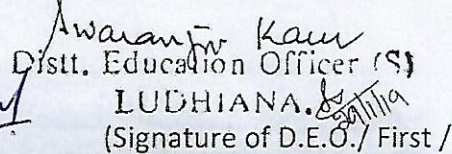 Swaranjit Kaur
Distt. Education Officer (S)
LUDHIANA.
(Signature of D.E.O./ First /